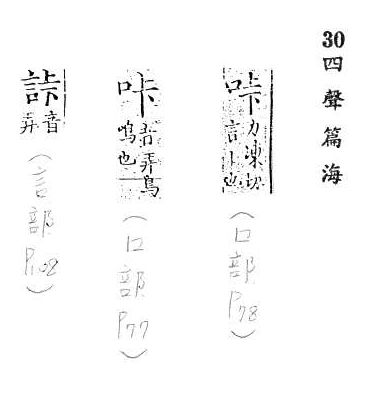 30 四聲篇海
咔 力凍切 言也
(口部 P78)
咔 音弄鳥鳴也
(口部 P77)
音弄
(言部 P102)